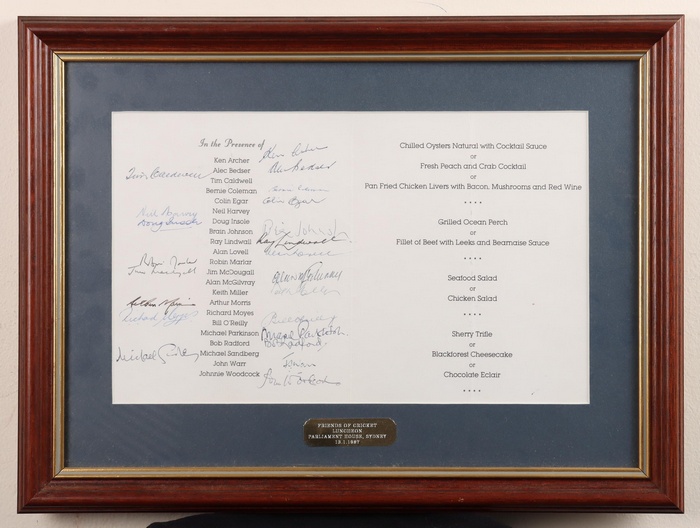 In the Presence of
Ken Archer
Alec Bedser
Tim Caldwell
Bernie Coleman
Colin Egar
Neil Harvey
Doug Insole
Brain Johnson
Ray Lindwall
Alan Lovell
Robin Marlar
Jim McDougall
Alan McGilvray
Keith Miller
Arthur Morris
Richard Moyes
Bill O'Reilly
Michael Parkinson
Bob Radford
Michael Sandberg
John Warr
Johnnie Woodcock
Ken Archer
Alec Bedser
Colin Egar
Doug Insole
Ray Lindwall
Chilled Oysters Natural with Cocktail Sauce
or
Fresh Peach and Crab Cocktail
or
Pan Fried Chicken Livers with Bacon, Mushrooms and Red Wine
* * * *
Grilled Ocean Perch
or
Fillet of Beef with Leeks and Bearnaise Sauce
* * * *
Seafood Salad
or
Chicken Salad
* * * *
Sherry Trifle
or
Blackforest Cheesecake
or
Chocolate Eclair
* * * *
FRIENDS OF CRICKET
LUNCHEON
PARLIAMENT HOUSE, SYDNEY
13.1.1987